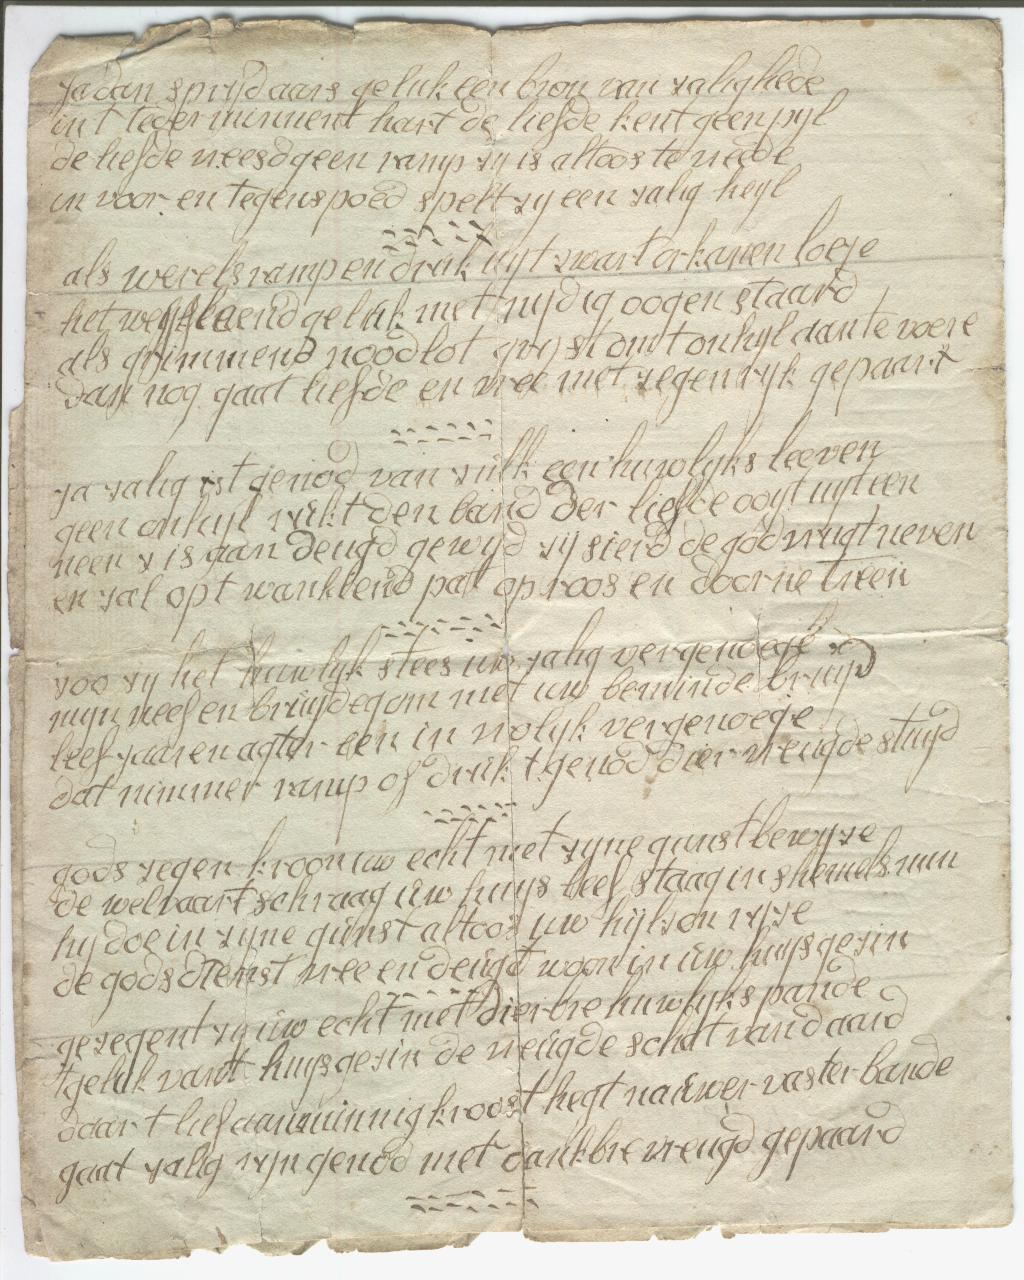 ja dan sprijd aars geluk een bron van zalighede
in t tegen minnent hart de liefde kent geen pyl
de liefde vreesd geen ramp zy is altoos te vrede
in voor en tegenspoed spelt zy een zalig heyl
als werelsramp en druk uyt zwart orkanen loeje
het weyfflaend geluk met nydig oogen staard
als grimmend noodlot onhyl aan te voere
dan nog gaat liefde en vree met zegenryk gepaart
ja zalig ist genod van zulk een huwlyks leeven
geen onhyl rukt den band der liefde ooyt uyt een
neen z is aan deugd gewyd zy sierd de godvrugt neven
en zal opt wanklend pat op roos en doorne treen
zoo zy het huwlyk steets uw zalig vergenoege
myn neef en bruydegom met uw beminde bruyd
leef jaaren agter een in vrolyk vergenoege
dat nimmer ramp of druk t genod dier vreugde stuyd
gods zegen kroon uw echt met zyne gunst bewyze
de welvaart schraag uw huys leef staag in shemels min
hy doe in zyne gunst altoos uw hijlzon ryze
de godsdienst vree en deugd woon in uw huysgezin
gezegent zy uw echt met dierbre huwlyks pande
tgeluk vant huysgezin de vreugde schat van d aard
daar t lief aanminnig kroost hegt nauwer vaster bande
gaat zalig zyn genod met dankbre vreugd gepaard